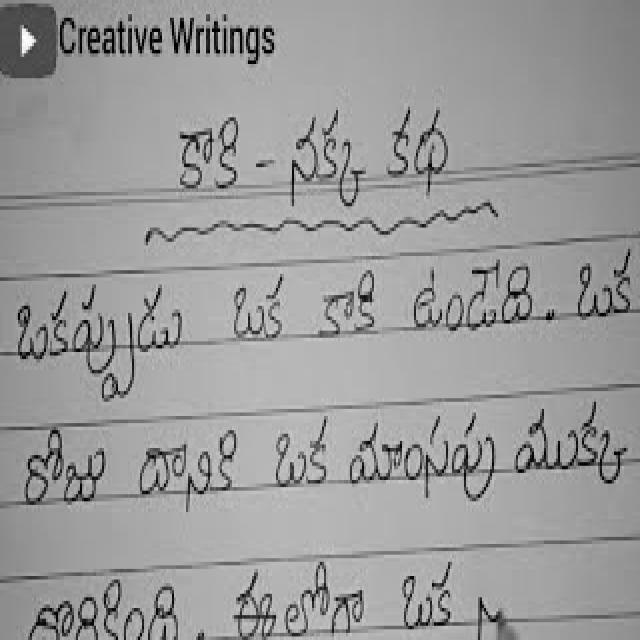 Creative Writings
కాకి - నక్క కథ
ఒకప్పుడు ఒక కాకి ఉండేది. ఒక
రోజు దానికి ఒక మాంసపు ముక్క
దొరికింది. ఈలోగా ఒక